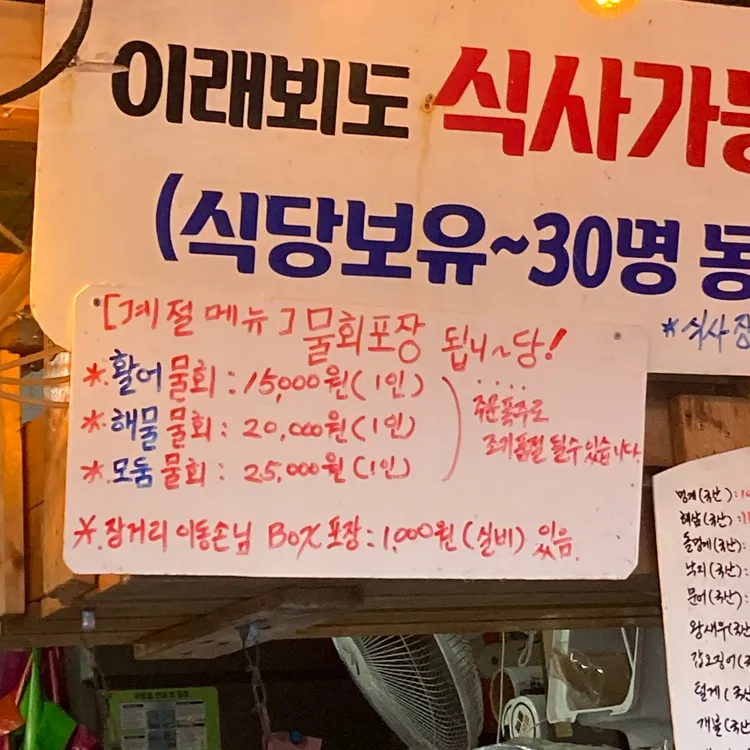 이래뵈도 식사가능
(식당보유~30명 동
*식사 장
[계절메뉴] 물회포장 됩니~당!
*. 활어물회 : 15,000원(1인)
*. 해물물회 : 20,000원(1인)
*. 모둠물회 : 25,000원(1인)
주문폭주로
조기품절 될수있습니다.
*. 장거리 이동손님 BOX포장 : 1,000원(실비) 있음.
멍게(국산) : 1
해삼(국산) : 1
돌멍게(국산) :
낙지(국산) :
문어(국산) :
왕새우(국산
갑오징어(국
털게(국산
개불(국산